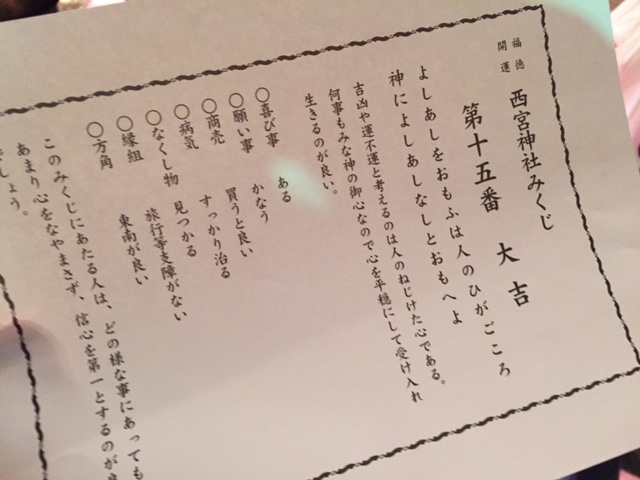 福徳
開運
西宮神社みくじ
第十五番 大吉
よしあしをおもふは人のひがごころ
神によしあしなしとおもへよ
吉凶や運不運と考えるのは人のねじけた心である。
何事もみな神の御心なので心を平穏にして受け入れ
生きるのが良い。
○喜び事 ある
○願い事 かなう
○商売 買うと良い
○病気 すっかり治る
○なくし物 見つかる
○縁組 旅行等支障がない
○方角 東南が良い
このみくじにあたる人は、どの様な事にあっても
あまり心をなやまさず、信心を第一とするのが良
しょう。